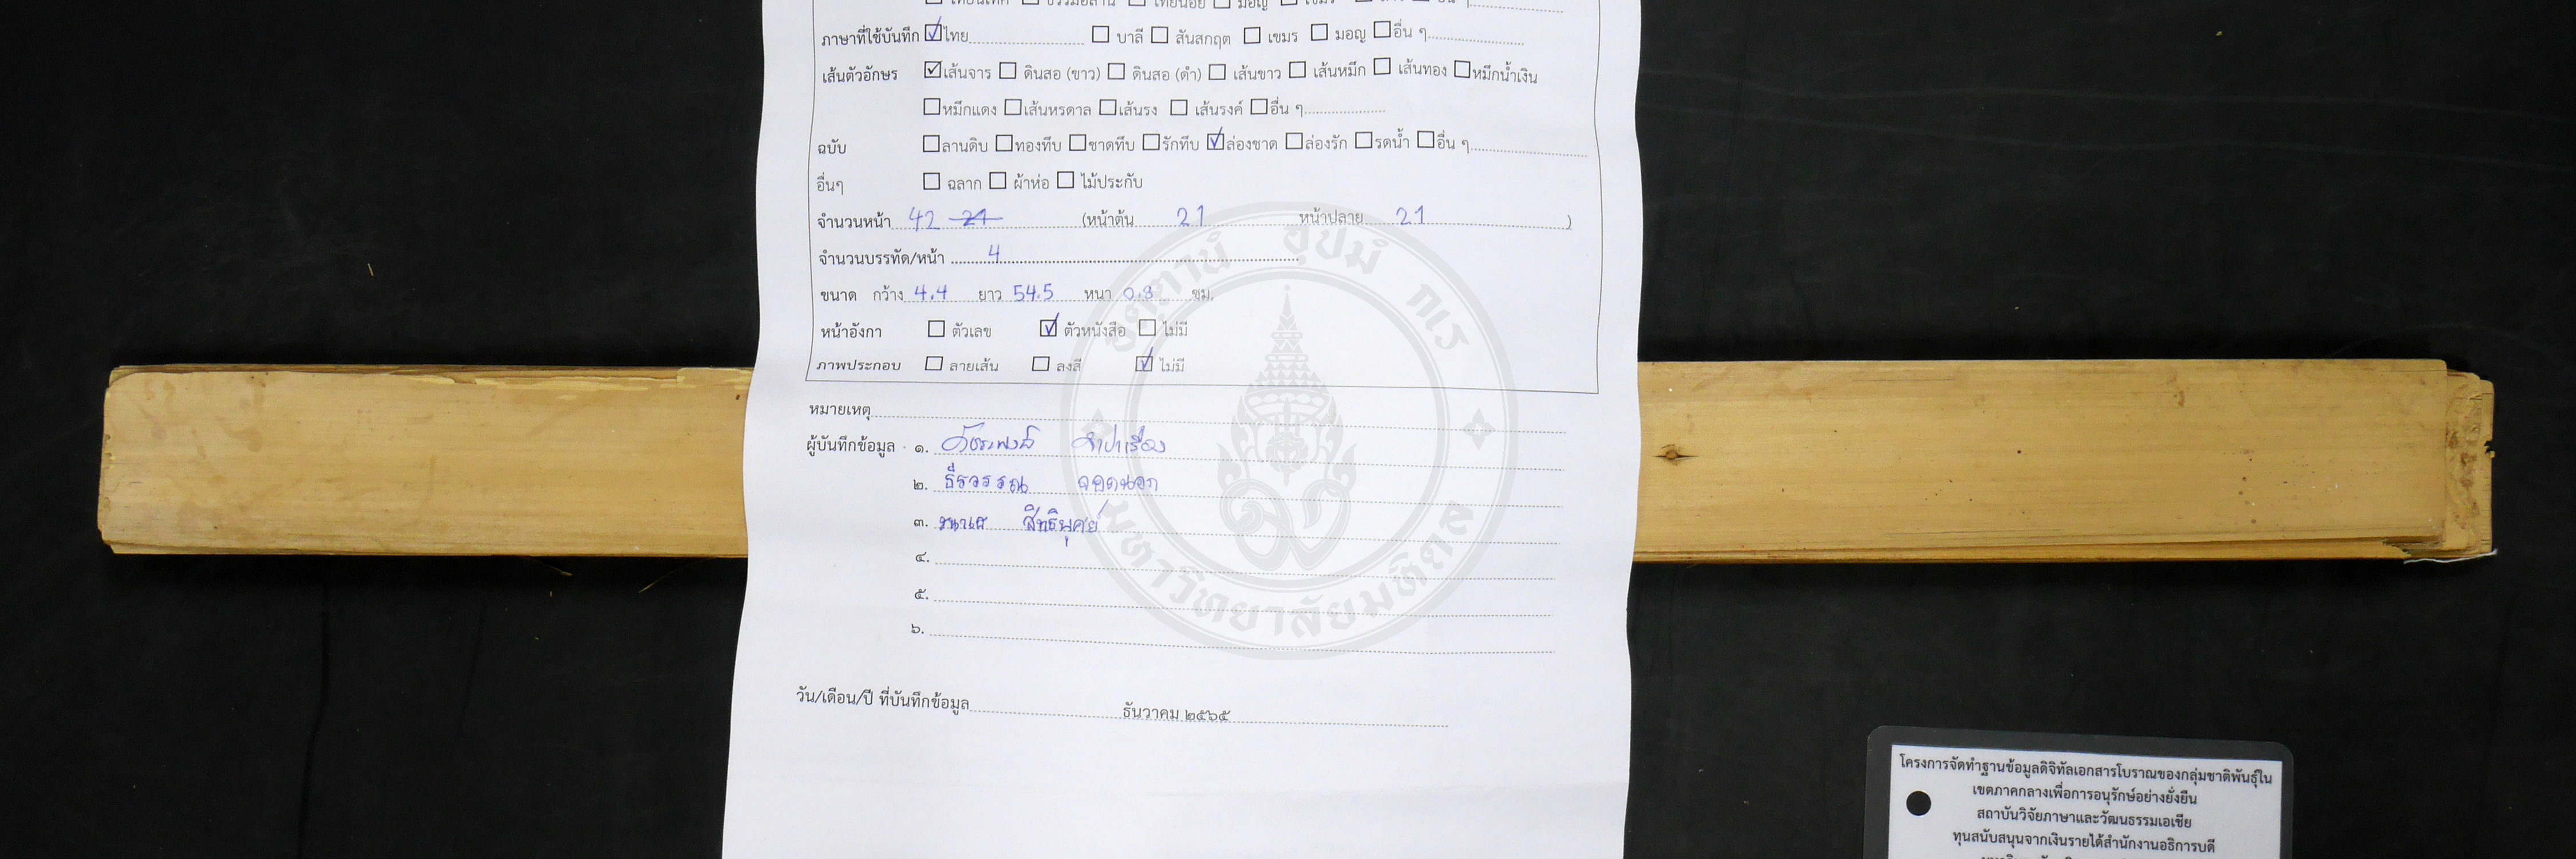 ภาษาที่ใช้บันทึก ☑ไทย ☐ บาลี ☐ สันสกฤต ☐ เขมร ☐ มอญ ☐อื่น ๆ
เส้นตัวอักษร ☑เส้นจาร ☐ ดินสอ (ขาว) ☐ ดินสอ (ดำ) ☐ เส้นขาว ☐ เส้นหมึก ☐ เส้นทอง ☐หมึกน้ำเงิน
☐หมึกแดง ☐เส้นหรดาล ☐เส้นรง ☐ เส้นรงค์ ☐อื่น ๆ
ฉบับ ☐ลานดิบ ☐ทองทึบ ☐ชาดทึบ ☐รักทึบ ☑ล่องชาด ☐ล่องรัก ☐รดน้ำ ☐อื่น ๆ
อื่นๆ ☐ ฉลาก ☐ ผ้าห่อ ☐ ไม้ประกับ
จำนวนหน้า 42 21 (หน้าต้น 21 หน้าปลาย 21 )
จำนวนบรรทัด/หน้า 4
ขนาด กว้าง 4.4 ยาว 54.5 หนา 0.3 ซม.
หน้าอังกา ☐ ตัวเลข ☑ ตัวหนังสือ ☐ ไม่มี
ภาพประกอบ ☐ ลายเส้น ☐ ลงสี ☑ ไม่มี
หมายเหตุ
ผู้บันทึกข้อมูล ๑.
๒. ธีรวรรณ
๓.
๔.
๕.
๖.
วัน/เดือน/ปี ที่บันทึกข้อมูล ธันวาคม ๒๕๖๕
อตฺตานํ อุปมํ กเร
มหาวิทยาลัยมหิดล
โครงการจัดทำฐานข้อมูลดิจิทัลเอกสารโบราณของกลุ่มชาติพันธุ์ใน
เขตภาคกลางเพื่อการอนุรักษ์อย่างยั่งยืน
สถาบันวิจัยภาษาและวัฒนธรรมเอเชีย
ทุนสนับสนุนจากเงินรายได้สำนักงานอธิการบดี